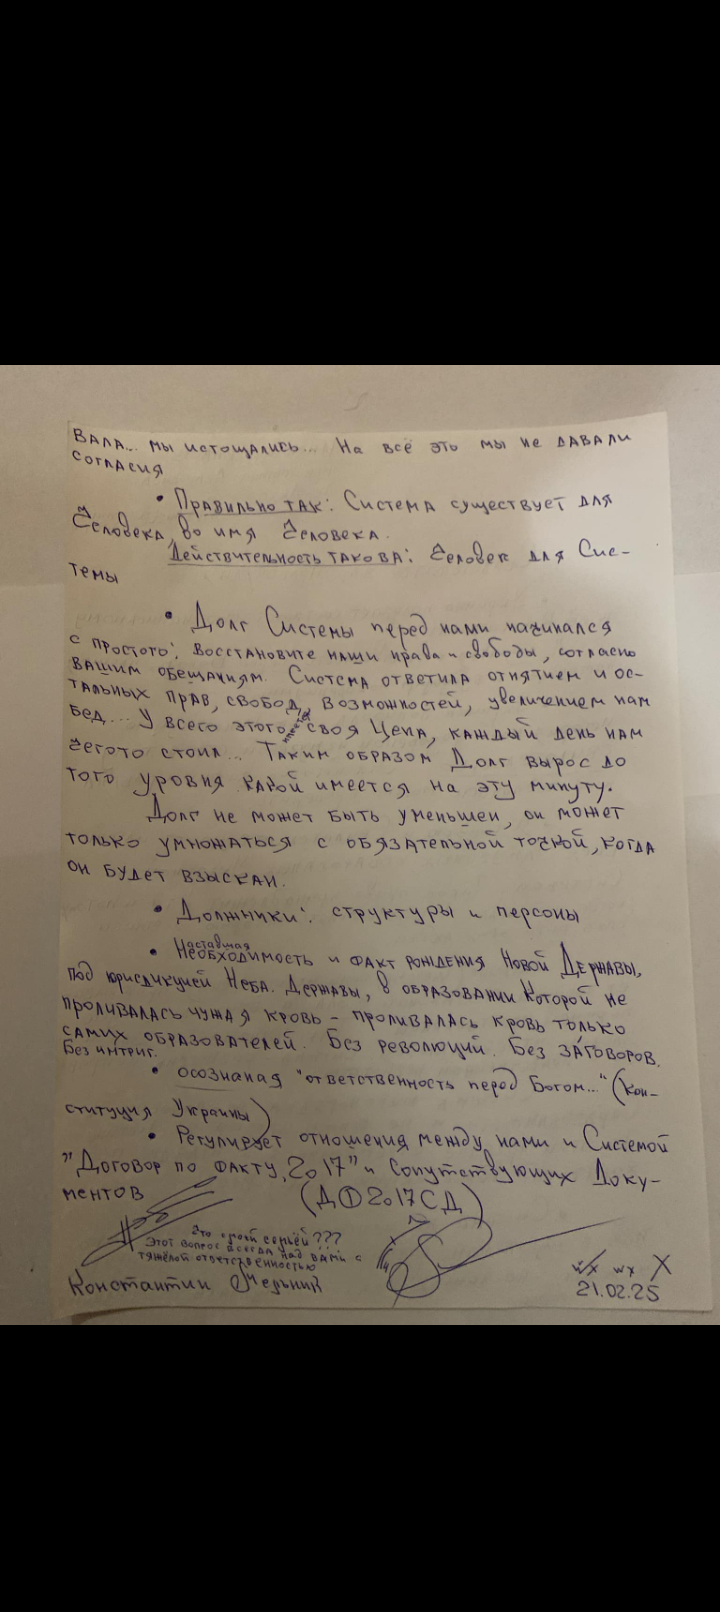 вала... мы истощались... На всё это мы не давали
согласия
• Правильно так: Система существует для
Человека, во имя Человека.
Действительность такова: Человек для Сис-
темы
• Долг Системы перед нами начинался
с простого: восстановите наши права и свободы, согласно
вашим обещаниям. Система ответила отнятием и ос-
тальных прав, свобод, возможностей, увеличением нам
бед... У всего этого своя Цена, каждый день нам
чегото стоил... Таким образом Долг вырос до
того уровня какой имеется на эту минуту.
Долг не может быть уменьшен, он может
только умножаться с обязательной точкой, когда
он будет взыскан.
• Должники: структуры и персоны
наставшая
• Необходимость и факт рождения Новой Державы,
под юрисдикцией Неба. Державы, в образовании Которой не
проливалась чужая кровь – проливалась кровь только
самих образователей. Без революций. Без заговоров.
Без интриг.
• осозная "ответственность перед Богом..." (Кон-
ституция Украины)
• Регулирует отношения между нами и Системой
"Договор по Факту, 2017" и Сопутствующих Доку-
ментов (ДФ2017СД)
Что с моей семьёй???
Этот вопрос всегда над вами с
тяжёлой ответственностью
Константин Мельник
21.02.25